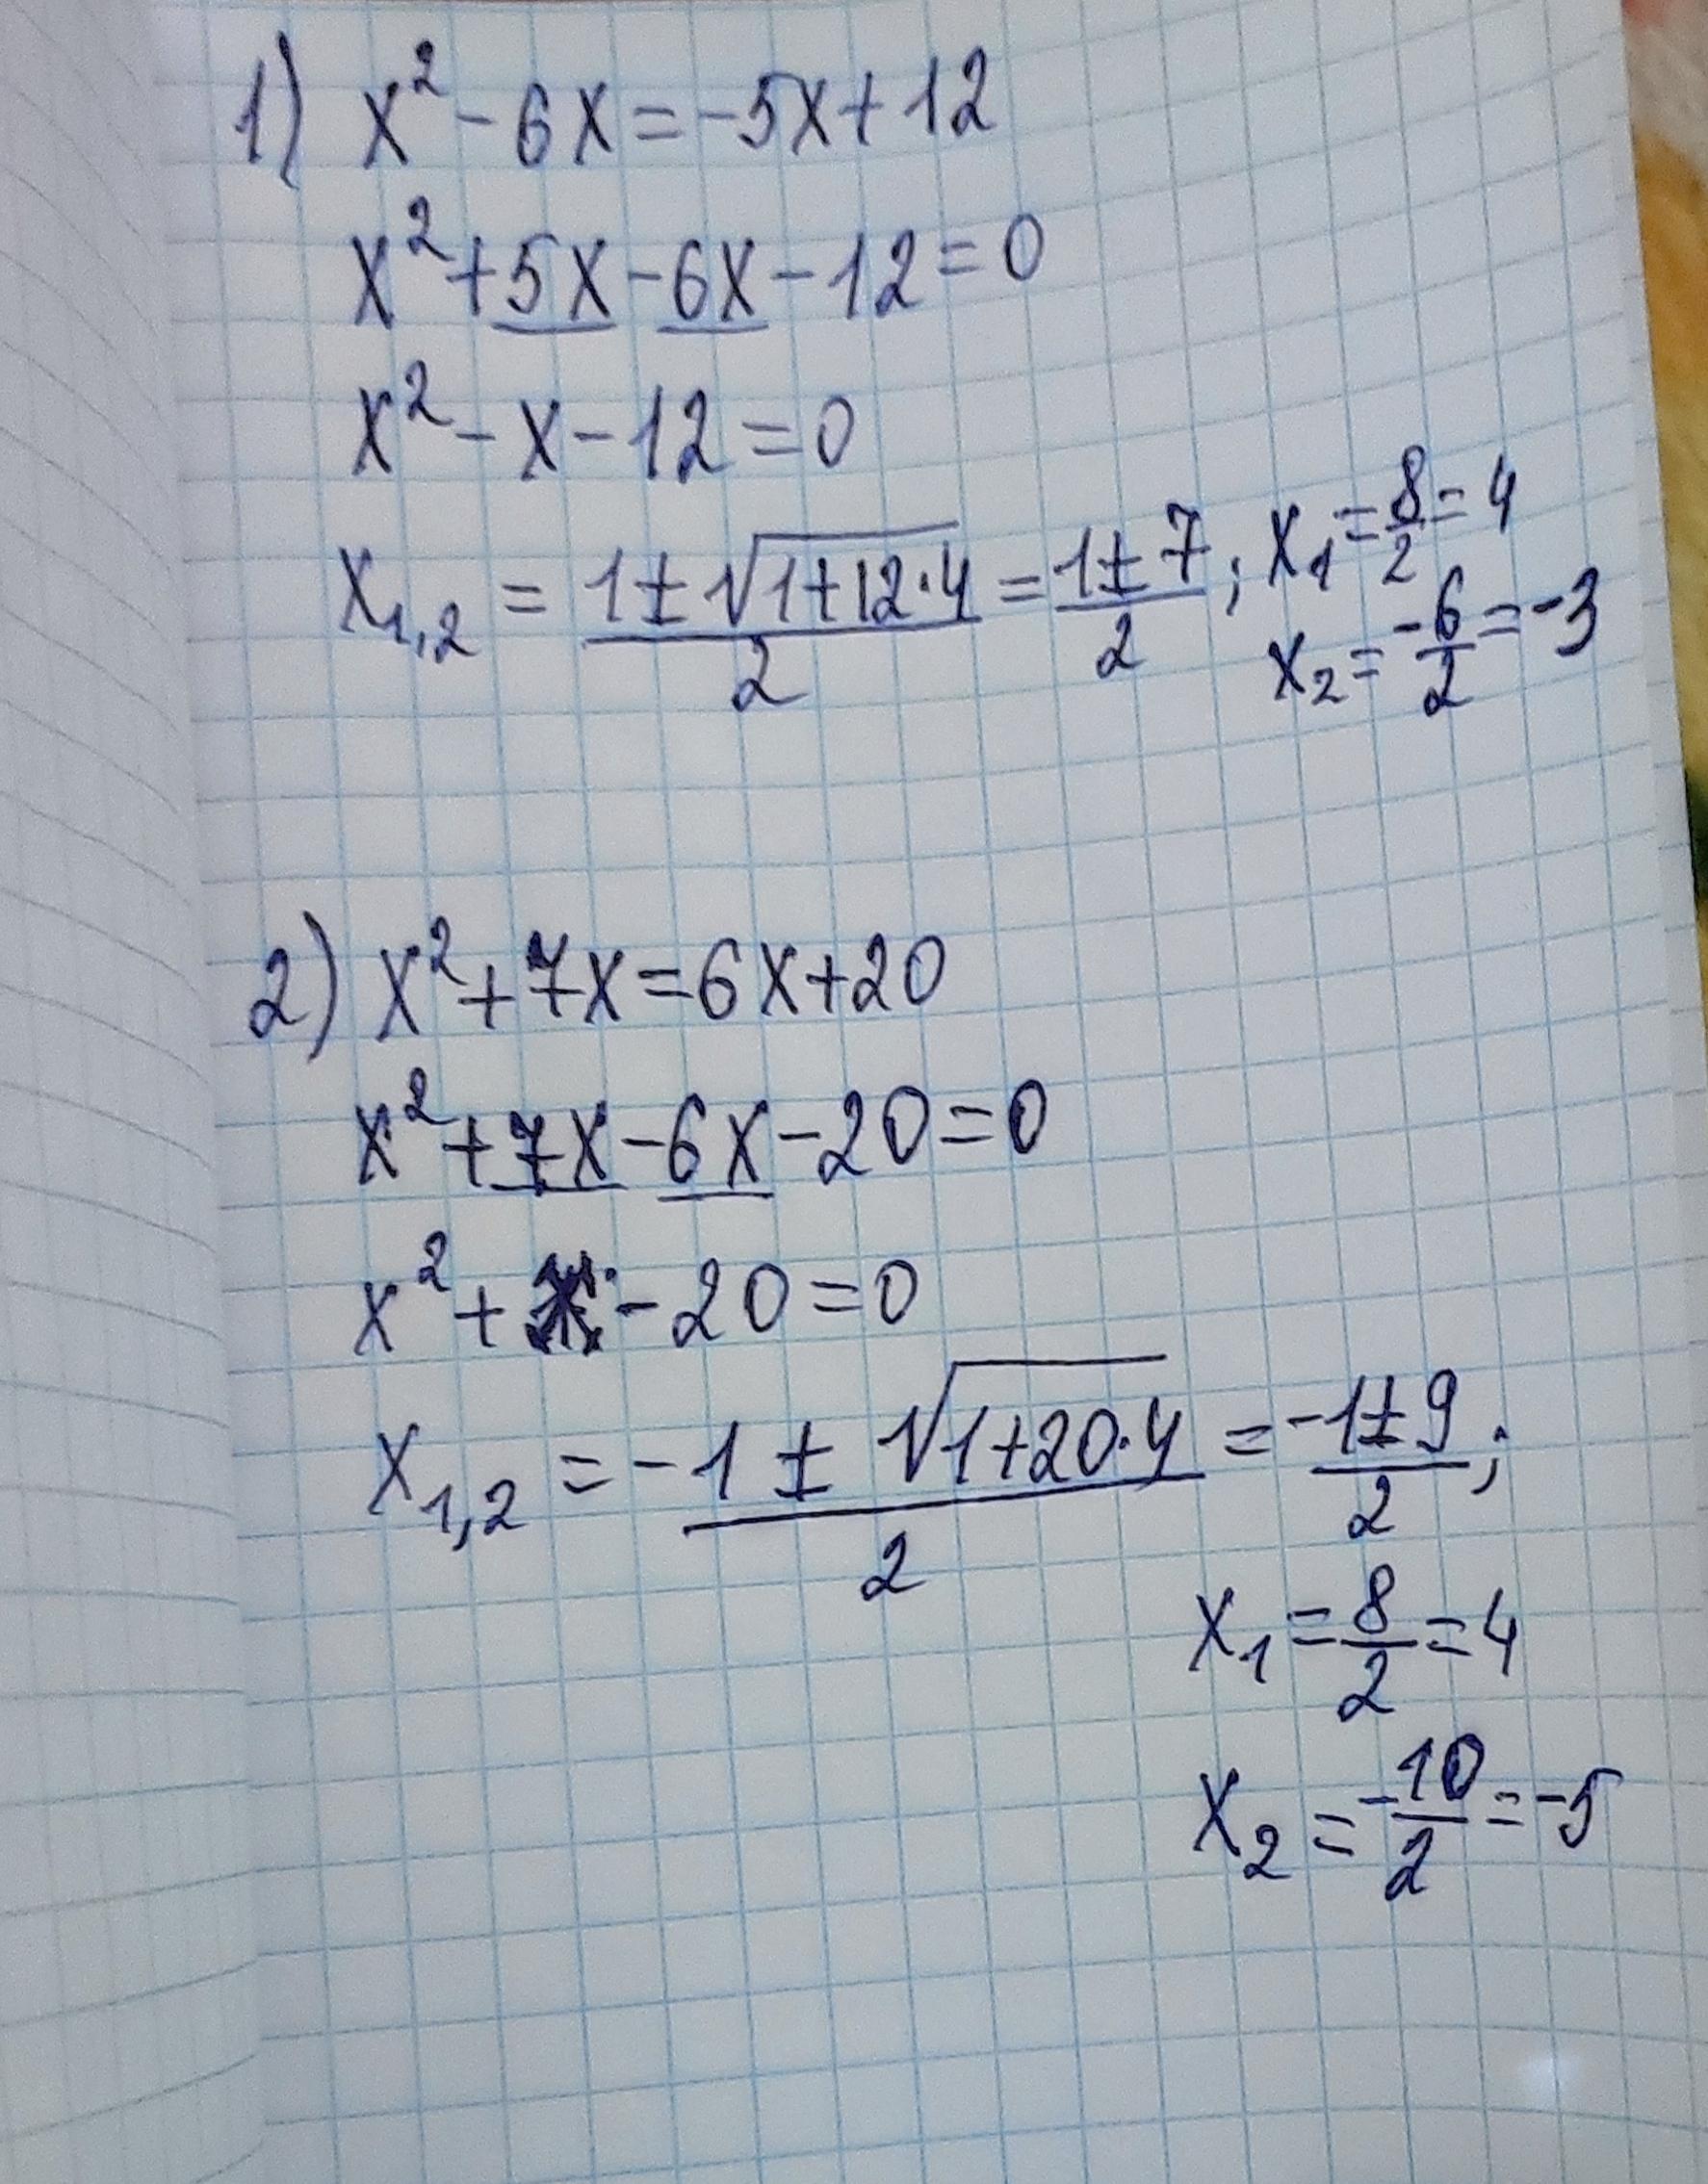 1) x² - 6x = -5x + 12
x² + 5x - 6x - 12 = 0
x² - x - 12 = 0
x₁,₂ = (1 ± √(1+12·4))/2 = (1 ± 7)/2 ; x₁ = 8/2 = 4
x₂ = -6/2 = -3
2) x² + 7x = 6x + 20
x² + 7x - 6x - 20 = 0
x² + x - 20 = 0
x₁,₂ = (-1 ± √(1+20·4))/2 = (-1 ± 9)/2 ;
x₁ = 8/2 = 4
x₂ = -10/2 = -5